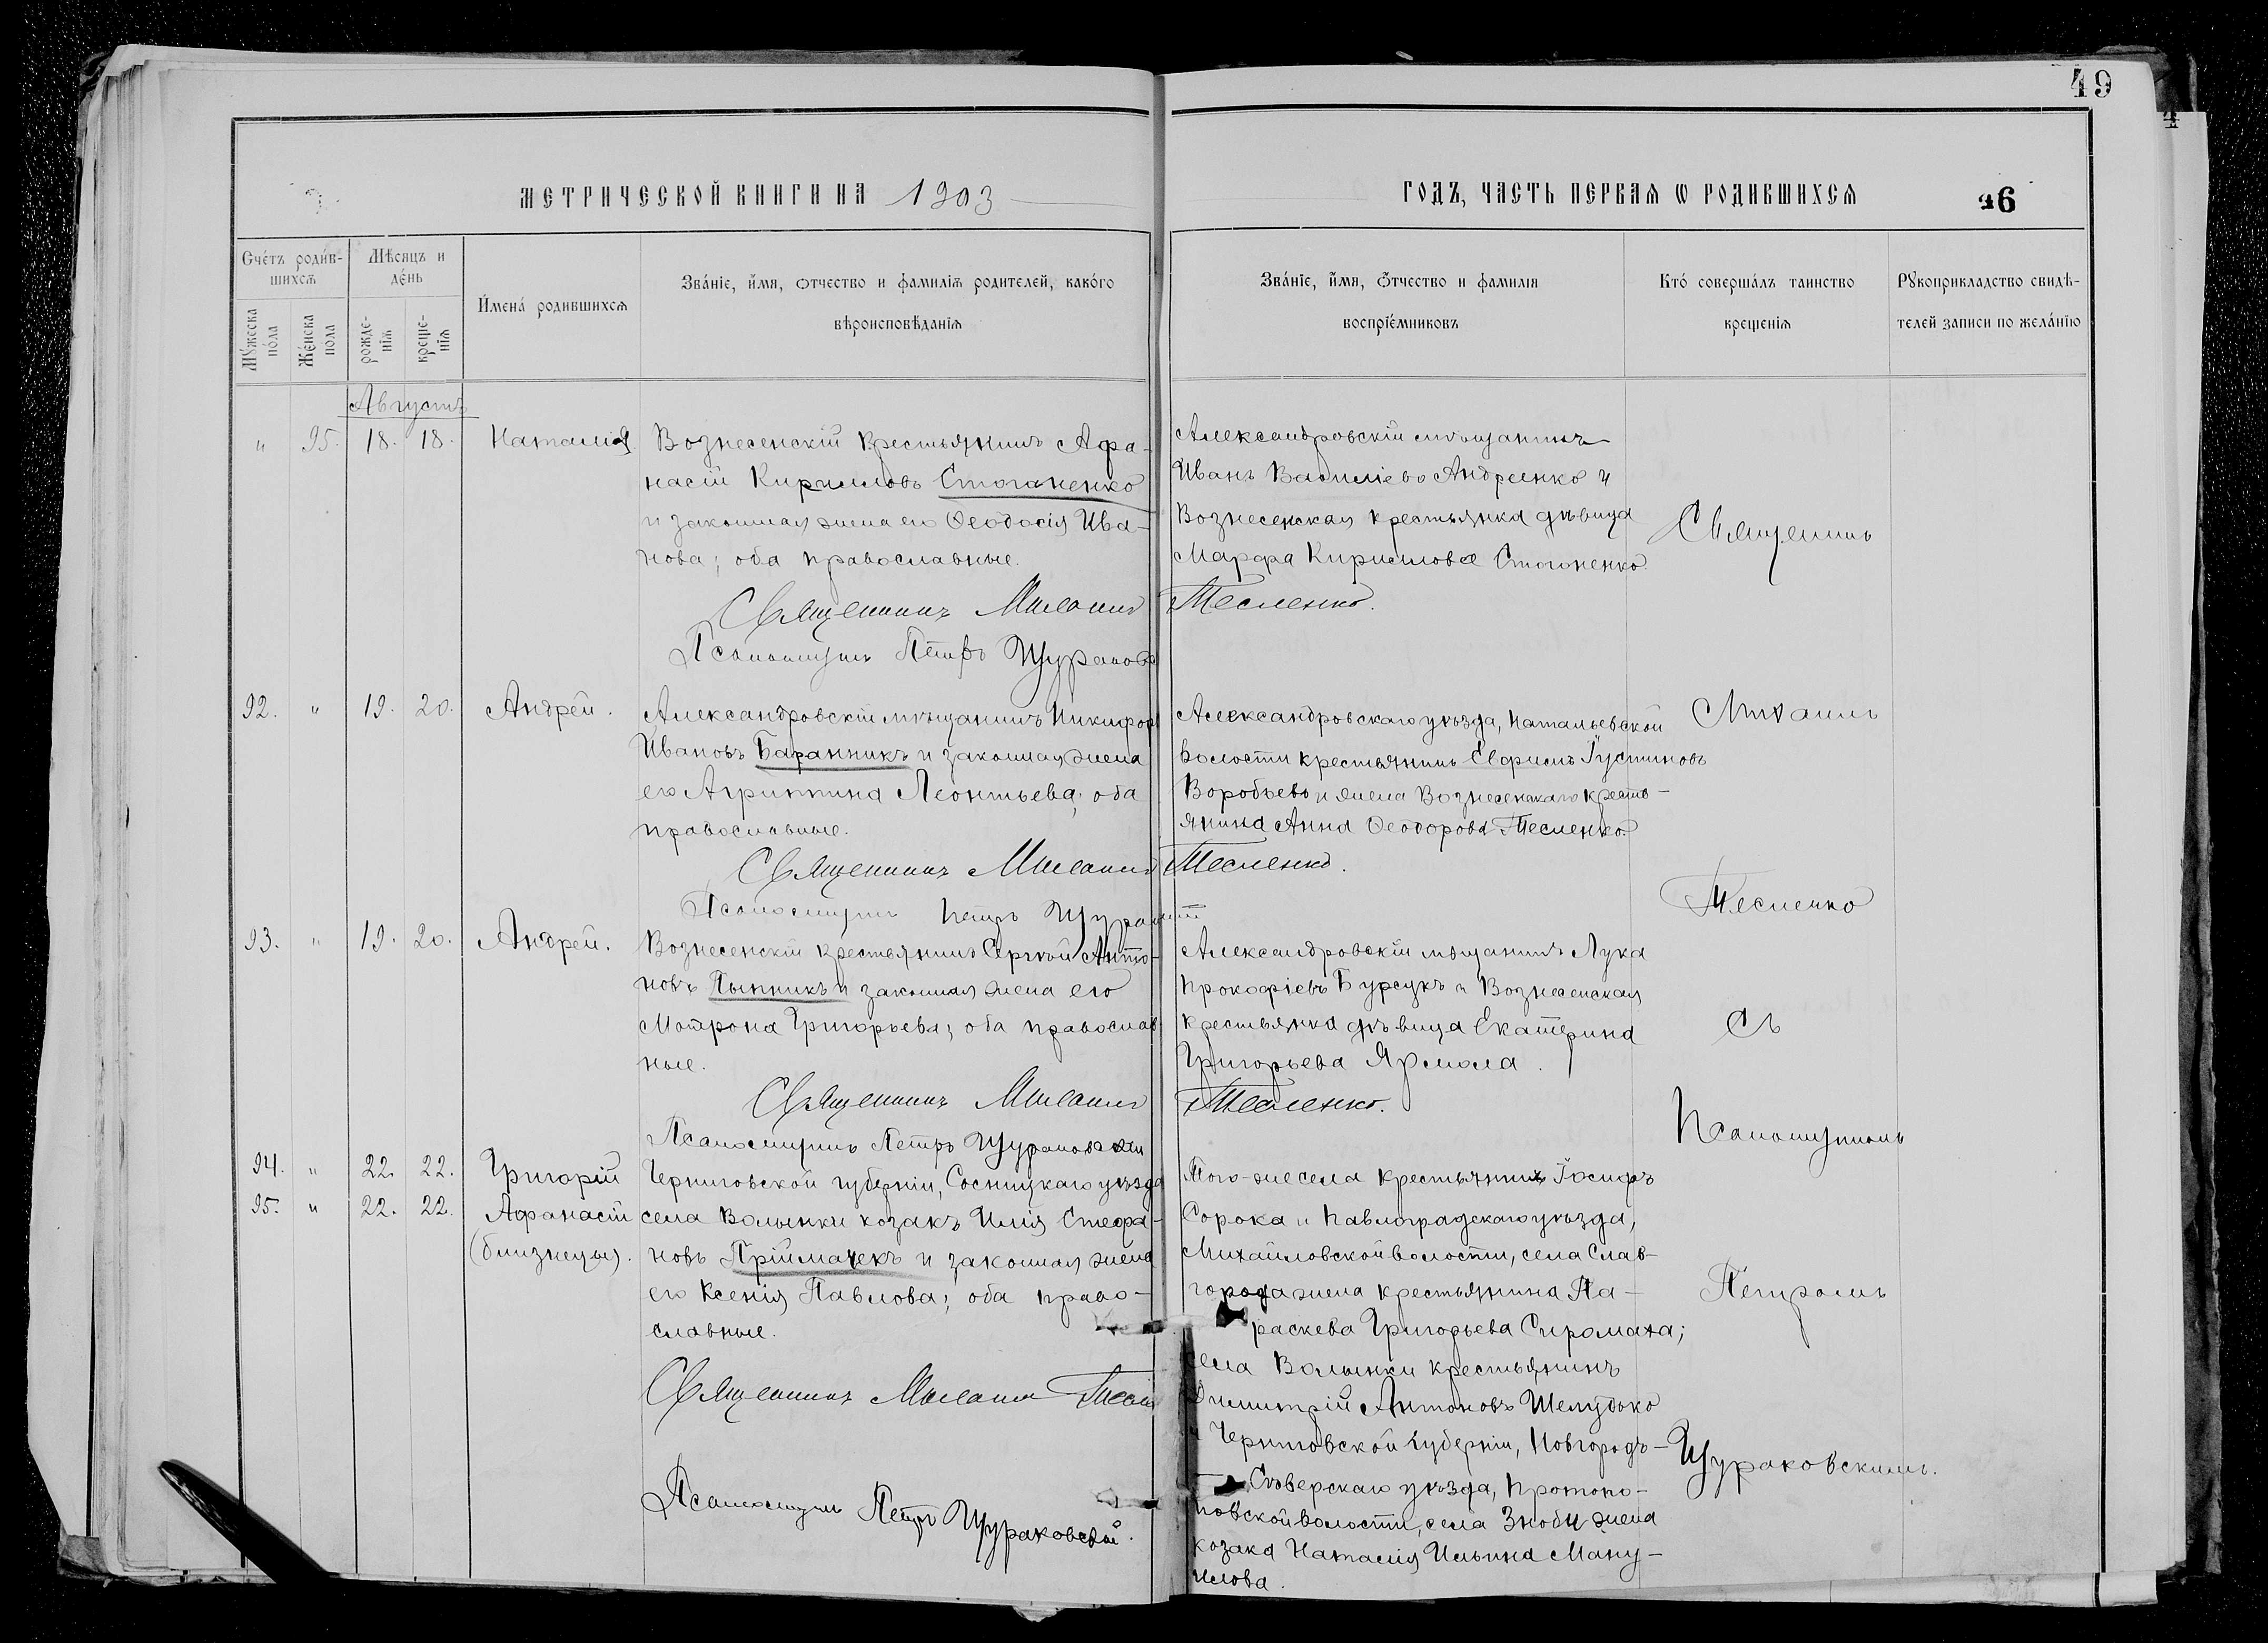 49
МЕТРИЧЕСКОЙ КНИГИ НА 1903
ГОДЪ, ЧАСТЬ ПЕРВАЯ Ѡ РОДИВШИХСЯ
46
Счётъ роди́в-
шихсѧ
Мѣсяцъ и
де́нь
Мꙋ́жеска
по́ла
Же́нска
пола
рожде-
нїя
креще-
нїя
И́мена́ родившихсѧ
Зва́нїе, и́мя, ѻтчество и фамилїѧ родителей, како́го
вѣроисповѣданїѧ
Зва́нїе, и́мя, ѻтчество и фамилія
воспрїе́мниковъ
Кто́ соверша́лъ таинство
крещенїя
Рꙋкоприкладство свидѣ-
телей записи по жела́нїю
Августъ
" 95. 18. 18. Наталія
Вознесенскій крестьянинъ Афа-
насій Кирилловъ Стогоненко
и законная жена его Ѳеодосія Ива-
нова; оба православные.
Священникъ Михаилъ Тесленко.
Псаломщикъ Петръ Щураковс
Александровскій мѣщанинъ
Иванъ Василіевъ Андреенко и
Вознесенская крестьянка дѣвица
Марфа Кириллова Стогоненко.
92. " 19. 20. Андрей.
Александровскій мѣщанинъ Никифоръ
Ивановъ Баранникъ и законная жена
его Агриппина Леонтьева; оба
православные.
Священникъ Михаилъ Тесленко.
Псаломщикъ Петръ Щураков
Александровскаго уѣзда, Натальевской
волости крестьянинъ Евфимъ Іустиновъ
Воробьевъ и жена Вознесенскаго кресть-
янина Анна Ѳеодорова Тесленко.
93. " 19. 20. Андрей.
Вознесенскій крестьянинъ Сергѣй Анто-
новъ Пынникъ и законная жена его
Матрона Григорьева; оба православ-
ные.
Священникъ Михаилъ Тесленко.
Псаломщикъ Петръ Щураковскій
Александровскій мѣщанинъ Лука
Прокофіевъ Бурсукъ и Вознесенская
крестьянка дѣвица Екатерина
Григорьева Ярмола.
94. " 22. 22. Григорій
95. " 22. 22. Афанасій
(близнецы).
Черниговской губерніи, Сосницкаго уѣзда
села Волынки козакъ Илія Стефа-
новъ Пріймачекъ и законная жена
его Ксенія Павлова; оба право-
славные.
Священникъ Михаилъ Тесл
Псаломщикъ Петръ Щураковскій.
Того-же села крестьянинъ Іосифъ
Сорока и Павлоградскаго уѣзда,
Михайловской волости, села Слав-
города жена крестьянина Па-
раскева Григорьева Сиромаха;
села Волынки крестьянинъ
Димитрій Антоновъ Шелудько
и Черниговской губерніи, Новгородъ-
Сѣверскаго уѣзда, Протопо-
повской волости, села Зноби жена
козака Наталія Ильина Ману-
илова.
Священникъ
Михаилъ
Тесленко
Съ
Псаломщикомъ
Петромъ
Щураковскимъ.